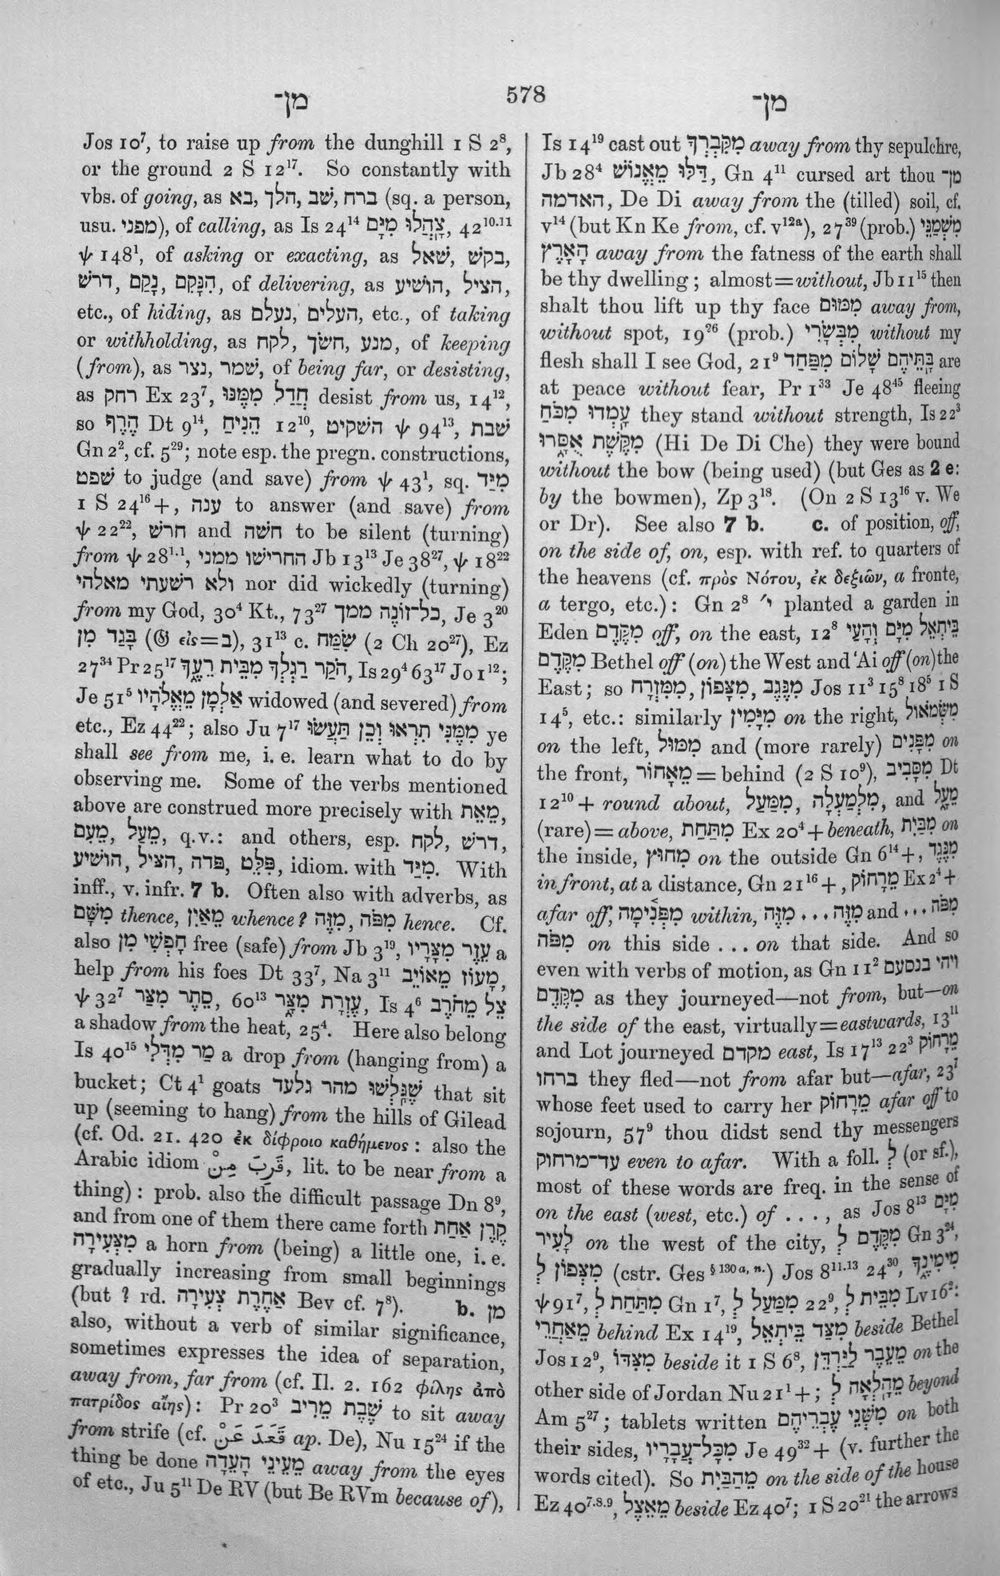 מן־
578
מן־
Jos 10⁷, to raise up from the dunghill 1 S 2⁸,
or the ground 2 S 12¹⁷. So constantly with
vbs. of going, as ברח, שב, הלך, בא (sq. a person,
usu. מפני), of calling, as Is 24¹⁴ צָהֲלוּ מִיָּם, 42¹⁰·¹¹
ψ 148¹, of asking or exacting, as בקש, שאל,
דרש, נקם, הִנָּקֵם, of delivering, as הציל, הושיע,
etc., of hiding, as העלים, נעלם, etc., of taking
or withholding, as לקח, חשׂך, מנע, of keeping
(from), as שמר, נצר, of being far, or desisting,
as רחק Ex 23⁷, חֲדַל מִמֶּנּוּ desist from us, 14¹²,
so הֶרֶף Dt 9¹⁴, הֵנִיחַ 12¹⁰, השקיט ψ 94¹³, שבת
Gn 2², cf. 5²⁹; note esp. the pregn. constructions,
שפט to judge (and save) from ψ 43¹, sq. מִיַּד
1 S 24¹⁶+, ענה to answer (and save) from
ψ 22²², חרש and חשה to be silent (turning)
from ψ 28¹·¹, החרישו ממני Jb 13¹³ Je 38²⁷, ψ 18²²
ולא רשעתי מאלהי nor did wickedly (turning)
from my God, 30⁴ Kt., 73²⁷ כל־זוֹנֶה ממך, Je 3²⁰
בָּגַד מִן (𝔊 εἰς=ב), 31¹³ c. שִׂמַּח (2 Ch 20²⁷), Ez
27³⁴ Pr 25¹⁷ הֹקַר רַגְלְךָ מִבֵּית רֵעֶךָ, Is 29⁴ 63¹⁷ Jo 1¹²;
Je 51⁵ אַלְמָן מֵאֱלֹהָיו widowed (and severed) from
etc., Ez 44²²; also Ju 7¹⁷ מִמֶּנִּי תִרְאוּ וְכֵן תַּעֲשׂוּ ye
shall see from me, i. e. learn what to do by
observing me. Some of the verbs mentioned
above are construed more precisely with מֵאֵת,
מֵעִם, מֵעַל, q.v.: and others, esp. לקח, דרש,
הושיע, הציל, פדה, פִּלֵּט, idiom. with מִיַּד. With
inff., v. infr. 7 b. Often also with adverbs, as
מִשָּׁם thence, מֵאַיִן whence? מִזֶּה, מִפֹּה hence. Cf.
also חָפְשִׁי מִן free (safe) from Jb 3¹⁹, עֵזֶר מִצָּרָיו a
help from his foes Dt 33⁷, Na 3¹¹ מָעוֹז מֵאוֹיֵב,
ψ 32⁷ סֵתֶר מִצַּר, 60¹³ עֶזְרָת מִצָּר, Is 4⁶ צֵל מֵחֹרֶב
a shadow from the heat, 25⁴. Here also belong
Is 40¹⁵ מַר מִדְּלִי a drop from (hanging from) a
bucket; Ct 4¹ goats שֶׁגָּלְשׁוּ מהר גלעד that sit
up (seeming to hang) from the hills of Gilead
(cf. Od. 21. 420 ἐκ δίφροιο καθήμενος : also the
Arabic idiom قَرُبَ مِنْ, lit. to be near from a
thing): prob. also the difficult passage Dn 8⁹,
and from one of them there came forth קֶרֶן אַחַת
מִצְּעִירָה a horn from (being) a little one, i. e.
gradually increasing from small beginnings
(but ? rd. אַחֶרֶת צְעִירָה Bev cf. 7⁸). b. מן
also, without a verb of similar significance,
sometimes expresses the idea of separation,
away from, far from (cf. Il. 2. 162 φίλης ἀπὸ
πατρίδος αἴης): Pr 20³ שֶׁבֶת מֵרִיב to sit away
from strife (cf. قَعَدَ عَنْ ap. De), Nu 15²⁴ if the
thing be done מֵעֵינֵי הָעֵדָה away from the eyes
of etc., Ju 5¹¹ De RV (but Be RVm because of),
Is 14¹⁹ cast out מִקִּבְרְךָ away from thy sepulchre,
Jb 28⁴ דַּלּוּ מֵאֱנוֹשׁ, Gn 4¹¹ cursed art thou מן־
האדמה, De Di away from the (tilled) soil, cf.
v¹⁴ (but Kn Ke from, cf. v¹²ᵃ), 27³⁹ (prob.) מִשְׁמַנֵּי
הָאָרֶץ away from the fatness of the earth shall
be thy dwelling; almost=without, Jb 11¹⁵ then
shalt thou lift up thy face מִמּוּם away from,
without spot, 19²⁶ (prob.) מִבְּשָׂרִי without my
flesh shall I see God, 21⁹ בָּתֵּיהֶם שָׁלוֹם מִפָּחַד are
at peace without fear, Pr 1³³ Je 48⁴⁵ fleeing
עָמְדוּ מִכֹּחַ they stand without strength, Is 22³
מִקֶּשֶׁת אֻסָּרוּ (Hi De Di Che) they were bound
without the bow (being used) (but Ges as 2 e:
by the bowmen), Zp 3¹⁸. (On 2 S 13¹⁶ v. We
or Dr). See also 7 b. c. of position, off,
on the side of, on, esp. with ref. to quarters of
the heavens (cf. πρὸς Νότου, ἐκ δεξιῶν, a fronte,
a tergo, etc.): Gn 2⁸ ׳י planted a garden in
Eden מִקֶּדֶם off, on the east, 12⁸ בֵּיתְאֵל מִיָּם וְהָעַי
מִקֶּדֶם Bethel off (on) the West and ʿAi off (on) the
East; so מִנֶּגֶב, מִצָּפוֹן, מִמִּזְרָח Jos 11³ 15⁸ 18⁵ 1 S
14⁵, etc.: similarly מִיָּמִין on the right, מִשְּׂמֹאול
on the left, מִמּוּל and (more rarely) מִפָּנִים on
the front, מֵאָחוֹר=behind (2 S 10⁹), מִסָּבִיב Dt
12¹⁰+ round about, מִמַּעַל, מִלְמַעְלָה, and מֵעָל
(rare)=above, מִתַּחַת Ex 20⁴+beneath, מִבַּיִת on
the inside, מִחוּץ on the outside Gn 6¹⁴+, מִנֶּגֶד
in front, at a distance, Gn 21¹⁶+, מֵרָחוֹק Ex 2⁴+
afar off, מִפְּנִימָה within, מִזֶּה . . . מִזֶּה and . . . מִפֹּה
מִפֹּה on this side . . . on that side. And so
even with verbs of motion, as Gn 11² ויהי בנסעם
מִקֶּדֶם as they journeyed—not from, but—on
the side of the east, virtually=eastwards, 13¹¹
and Lot journeyed מקדם east, Is 17¹³ 22³ מֵרָחוֹק
ברחו they fled—not from afar but—afar, 23⁷
whose feet used to carry her מֵרָחוֹק afar off to
sojourn, 57⁹ thou didst send thy messengers
עד־מרחוק even to afar. With a foll. לְ (or sf.),
most of these words are freq. in the sense of
on the east (west, etc.) of . . . , as Jos 8¹³ מִיָּם
לָעִיר on the west of the city, מִקֶּדֶם לְ Gn 3²⁴,
מִצְּפוֹן לְ (cstr. Ges § 130 a, n.) Jos 8¹¹·¹³ 24³⁰, מִימִינֶךָ
ψ 91⁷, מִתַּחַת לְ Gn 1⁷, מִמַּעַל לְ 22⁹, מִבֵּית לְ Lv 16²:
מֵאַחֲרֵי behind Ex 14¹⁹, מִצַּד בֵּיתְאֵל לְ beside Bethel
Jos 12⁹, מִצִּדּוֹ beside it 1 S 6⁸, מֵעֵבֶר לְיַרְדֵּן on the
other side of Jordan Nu 21¹+; מֵהָלְאָה לְ beyond
Am 5²⁷; tablets written מִשְּׁנֵי עֶבְרֵיהֶם on both
their sides, מִכָּל־עֲבָרָיו Je 49³²+ (v. further the
words cited). So מֵהַבַּיִת on the side of the house
Ez 40⁷·⁸·⁹, מֵאֵצֶל beside Ez 40⁷; 1 S 20²¹ the arrows